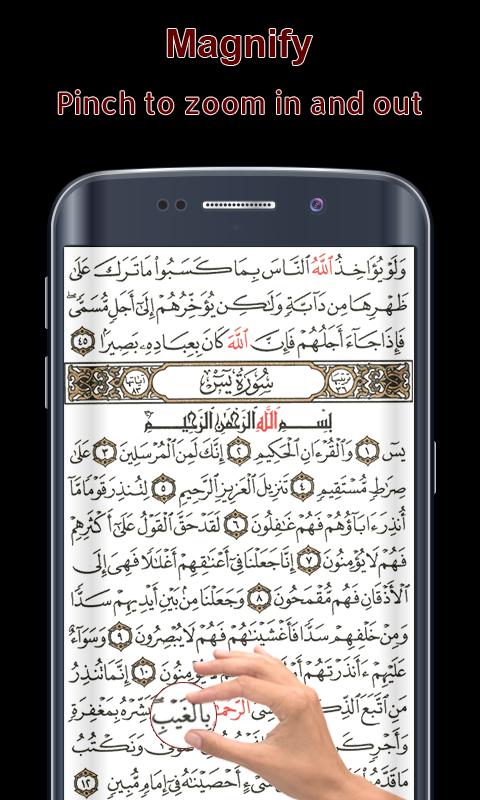 Magnify
Pinch to zoom in and out
وَلَوْ يُؤَاخِذُ ٱللَّهُ ٱلنَّاسَ بِمَا كَسَبُوا۟ مَا تَرَكَ عَلَىٰ
ظَهْرِهَا مِن دَآبَّةٍ وَلَٰكِن يُؤَخِّرُهُمْ إِلَىٰٓ أَجَلٍ مُّسَمًّى ۖ
فَإِذَا جَآءَ أَجَلُهُمْ فَإِنَّ ٱللَّهَ كَانَ بِعِبَادِهِۦ بَصِيرًۢا ٤٥
ترتيبها ٣٦ سُورَةُ يسٓ آياتها ٨٣
بِسْمِ ٱللَّهِ ٱلرَّحْمَٰنِ ٱلرَّحِيمِ
يسٓ ١ وَٱلْقُرْءَانِ ٱلْحَكِيمِ ٢ إِنَّكَ لَمِنَ ٱلْمُرْسَلِينَ ٣ عَلَىٰ
صِرَٰطٍ مُّسْتَقِيمٍ ٤ تَنزِيلَ ٱلْعَزِيزِ ٱلرَّحِيمِ ٥ لِتُنذِرَ قَوْمًا مَّآ
أُنذِرَ ءَابَآؤُهُمْ فَهُمْ غَٰفِلُونَ ٦ لَقَدْ حَقَّ ٱلْقَوْلُ عَلَىٰٓ أَكْثَرِهِمْ
فَهُمْ لَا يُؤْمِنُونَ ٧ إِنَّا جَعَلْنَا فِىٓ أَعْنَٰقِهِمْ أَغْلَٰلًا فَهِىَ إِلَى
ٱلْأَذْقَانِ فَهُم مُّقْمَحُونَ ٨ وَجَعَلْنَا مِنۢ بَيْنِ أَيْدِيهِمْ سَدًّا
وَمِنْ خَلْفِهِمْ سَدًّا فَأَغْشَيْنَٰهُمْ فَهُمْ لَا يُبْصِرُونَ ٩ وَسَوَآءٌ
عَلَيْهِمْ ءَأَنذَرْتَهُمْ يُؤْمِنُونَ ١٠ إِنَّمَا تُنذِرُ
مَنِ ٱتَّبَعَ ٱلرَّحْمَٰنَ بِٱلْغَيْبِ بِمَغْفِرَةٍ
وَأَجْرٍ وَنَكْتُبُ
مَا قَدَّمُوا۟ أَحْصَيْنَٰهُ فِىٓ إِمَامٍ مُّبِينٍ ١٢